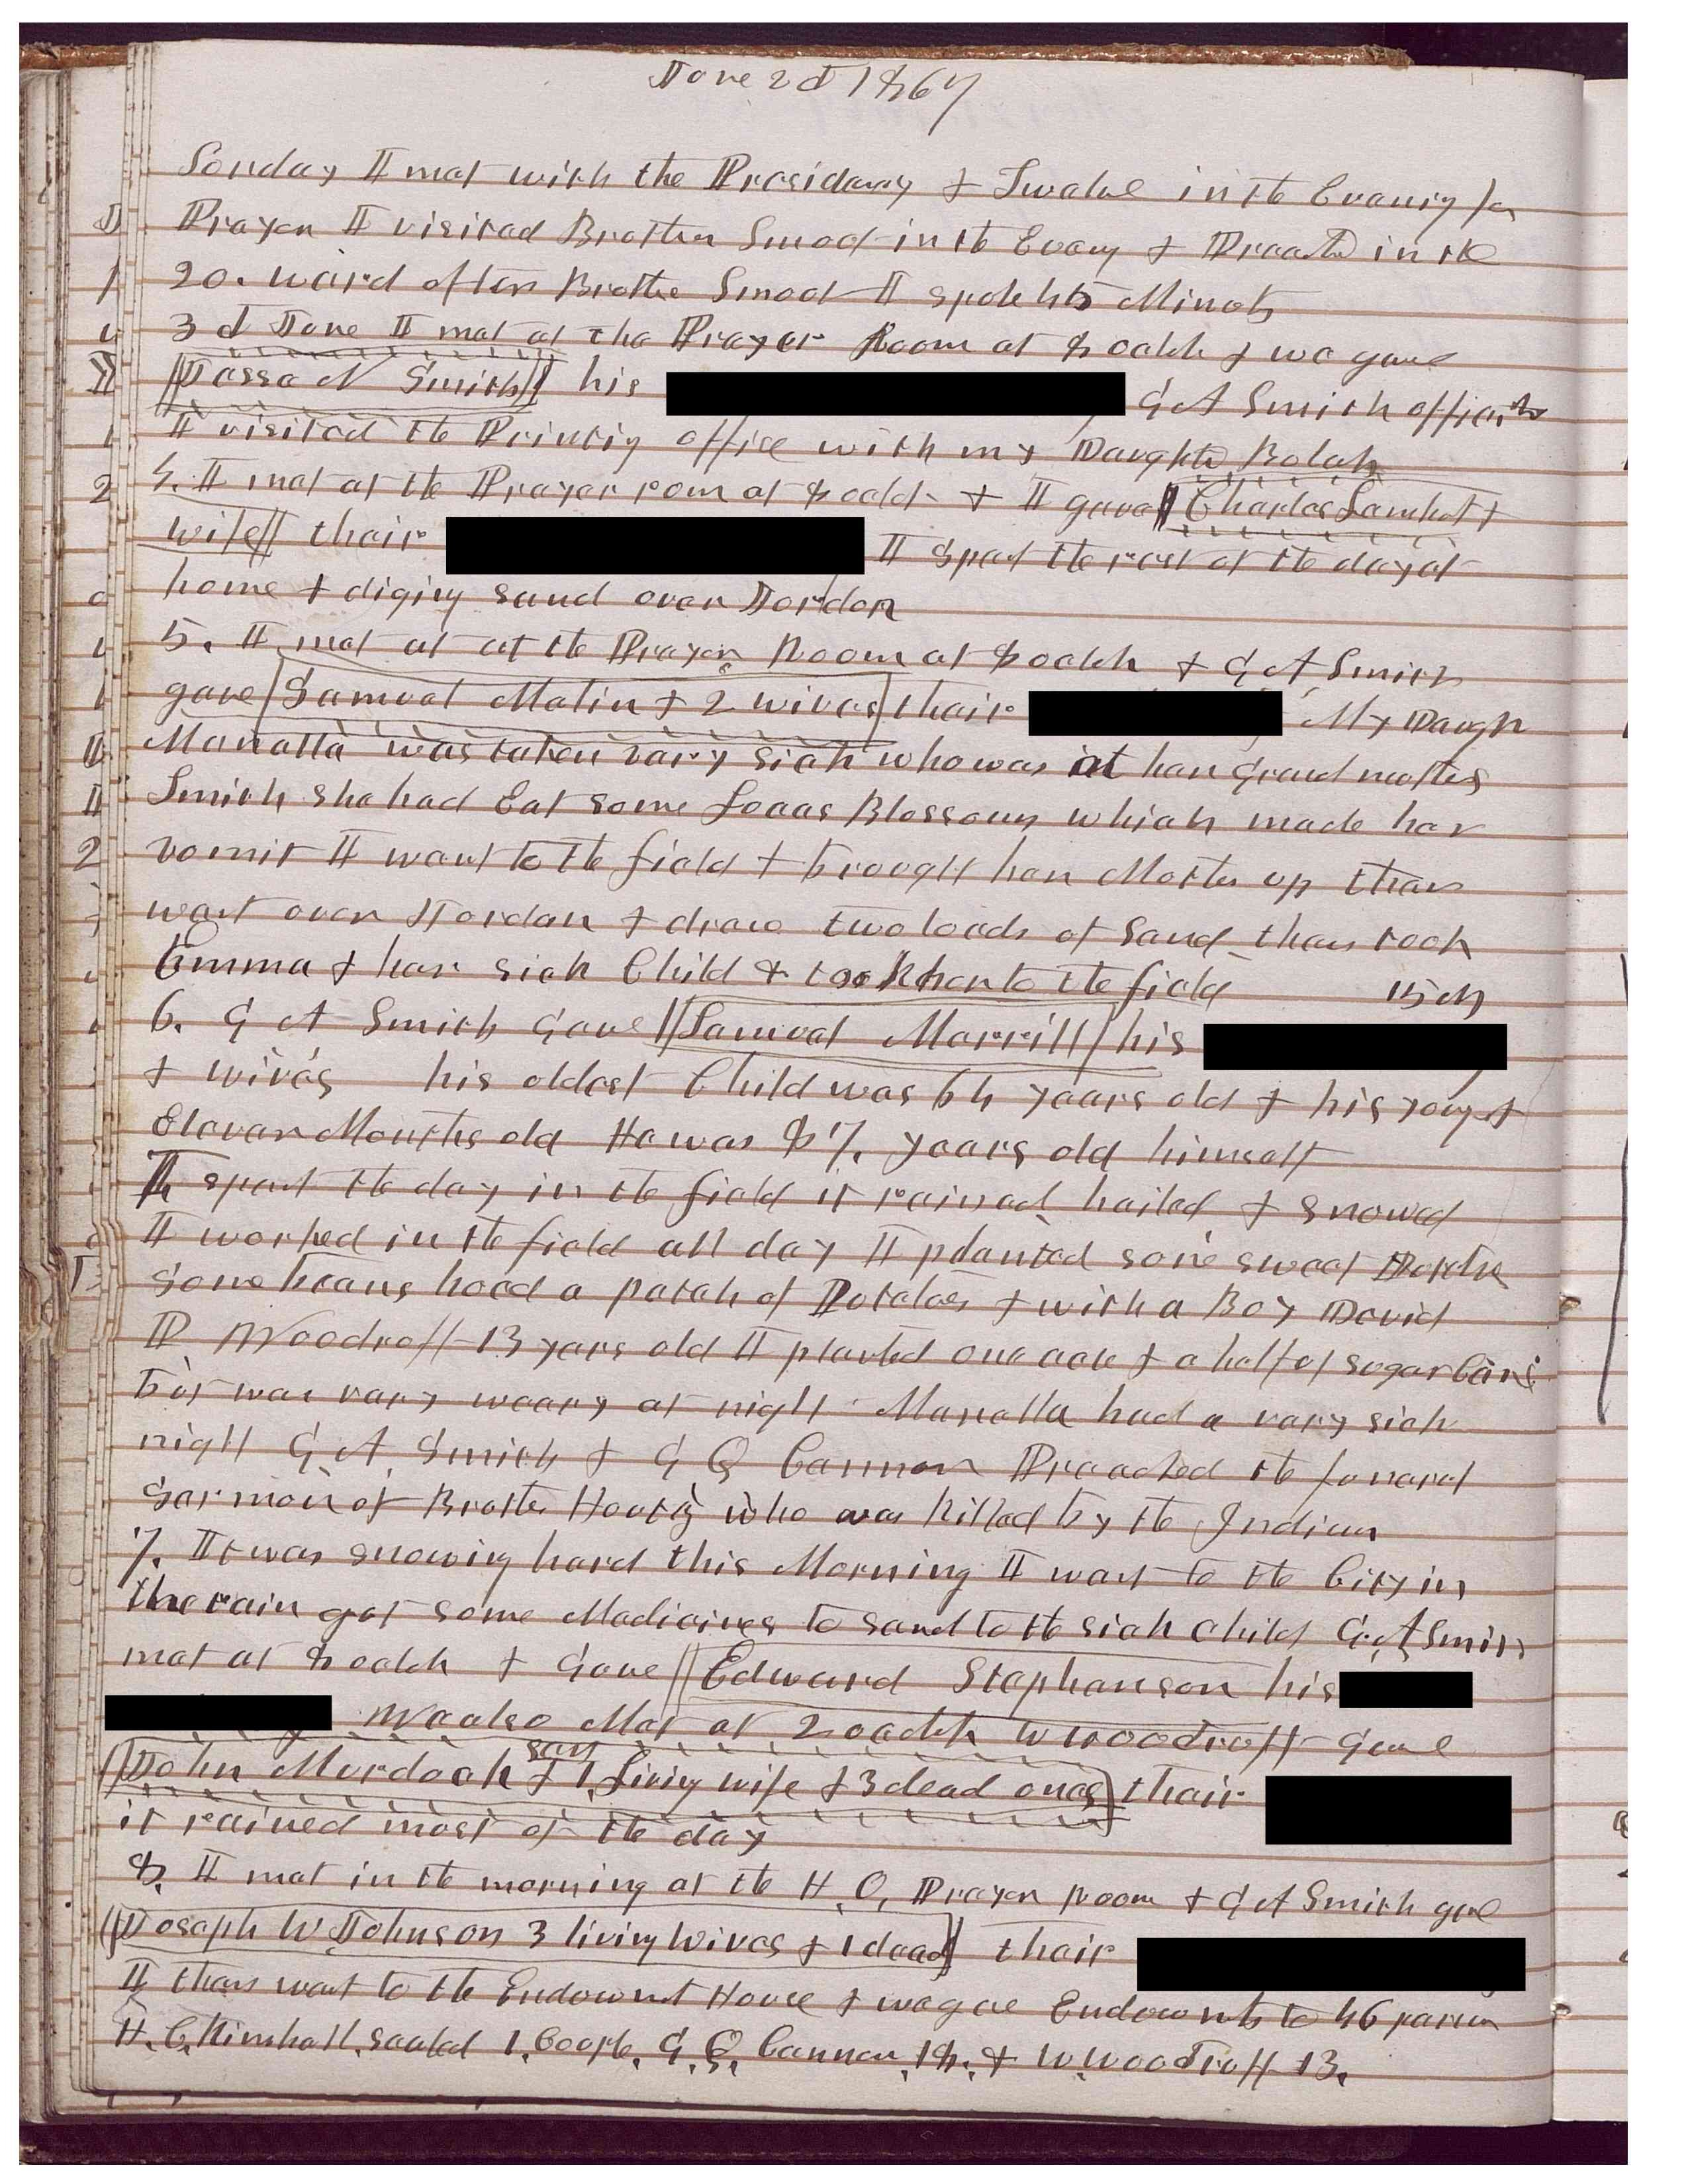 June 2d 1867
Sunday I met with the Presidency & Twelve in the Evening for
Prayer I visited Brother Smoot in the Eveng & Preachd in the
20. ward after Brother Smoot I spoke 45 Minuts
3d June I met at the Prayer Room at 8 oclok & we gave
Jesse N Smith his G A Smith officiatd
I visited the Printing office with my Daughter Bulah
4. I met at the Prayer room at 8 oclok & I gave Charles Lambert &
wife their I spent the rest of the day at
home & diging sand over Jordon
5. I met at at the Prayer Room at 8 oclok & G A Smith
gave Samuel Malin & 2 wives their My Daught
Manella was taken vary sick who was at her Grand mothers
Smith she had Eat some Locas Blossoms which made her
vomit I went to the field & brought her Mother up then
went over Jordan & drew two loads of sand then took
Emma & her sick Child & took her to the field 15 M
6. G A Smith gave Samuel Merrill his
& wives his oldest Child was 64 years old & his youngst
Eleven Months old He was 87. years old himself
I spent the day in the field it rained hailed & snowed
I worked in the field all day I planted some sweet Potatoe
some beans hoed a patch of Potatoes & with a Boy David
P Woodruff 13 years old I planted one acre & a half of sugar Cane
but was vary weary at night Manella had a vary sick
night G A Smith & G Q Cannon Preached the funeral
sermon of Brother Houtz who was killed by the Indians
7. It was snowing hard this Morning I went to the City in
the rain got some Medicines to send to the sick child G. A Smith
met at 8 oclok & Gave Edward Stephenson his
We also Met at 2 oclok W Woodruff Gave
John Murdock sen & 1 living wife & 3 dead ones their
it rained most of the day
8. I met in the morning at the H. O. Prayer room & G A Smith gave
Joseph W Johnson 3 living wives & 1 dead their
I then went to the Endowmt House & we gave Endowmts to 46 person
H. C. Kimball sealed 1. Coople. G. Q. Cannon 18. & W Woodruff 13.